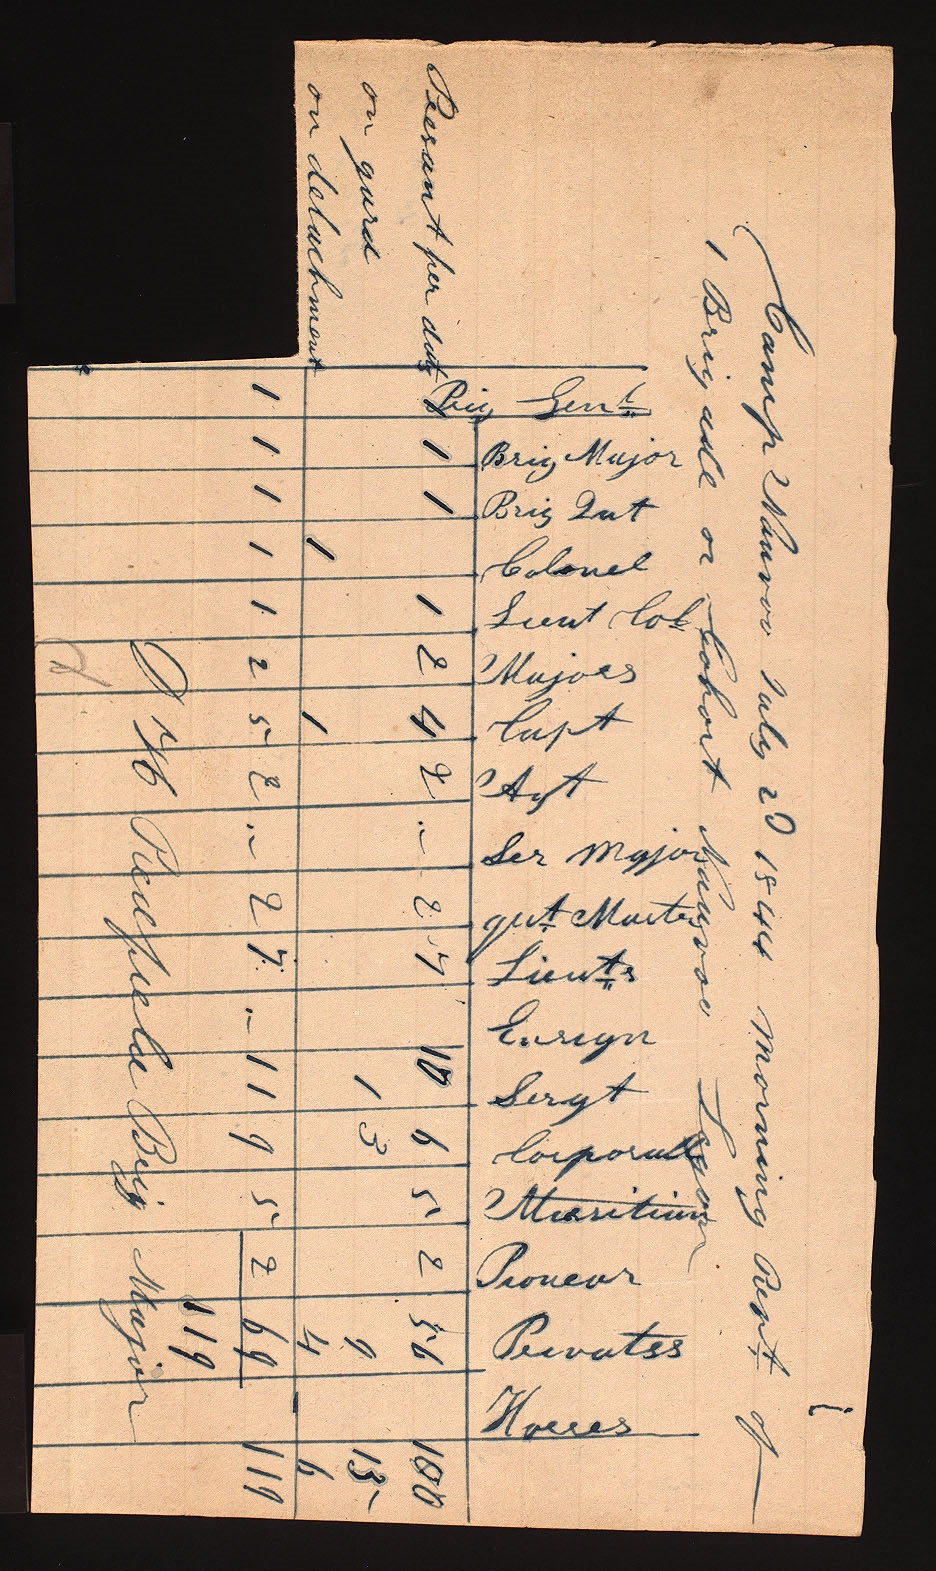 Camp Nauvoo July 20 1844 Morning Rept of
1 Brigade or Cohort Nauvoo Legion
Brig Genl
Brig Major
Brig Qut
Colonel
Lieut Col
Majors
Capt
Agt
Ser Major
qut Master
Lieuts
Ensign
Sergt
Corporals
Musitian
Pioneer
Privatss
Horses
Presant per duty 1 1 1 1 2 4 2 " 2 7 10 6 5 2 56 100
on gurd 1 3 9 13
on detachment 1 1 4 6
1 1 1 1 1 2 5 2 " 2 7 " 11 9 5 2 69 119
119
D H Redfield Brig Major